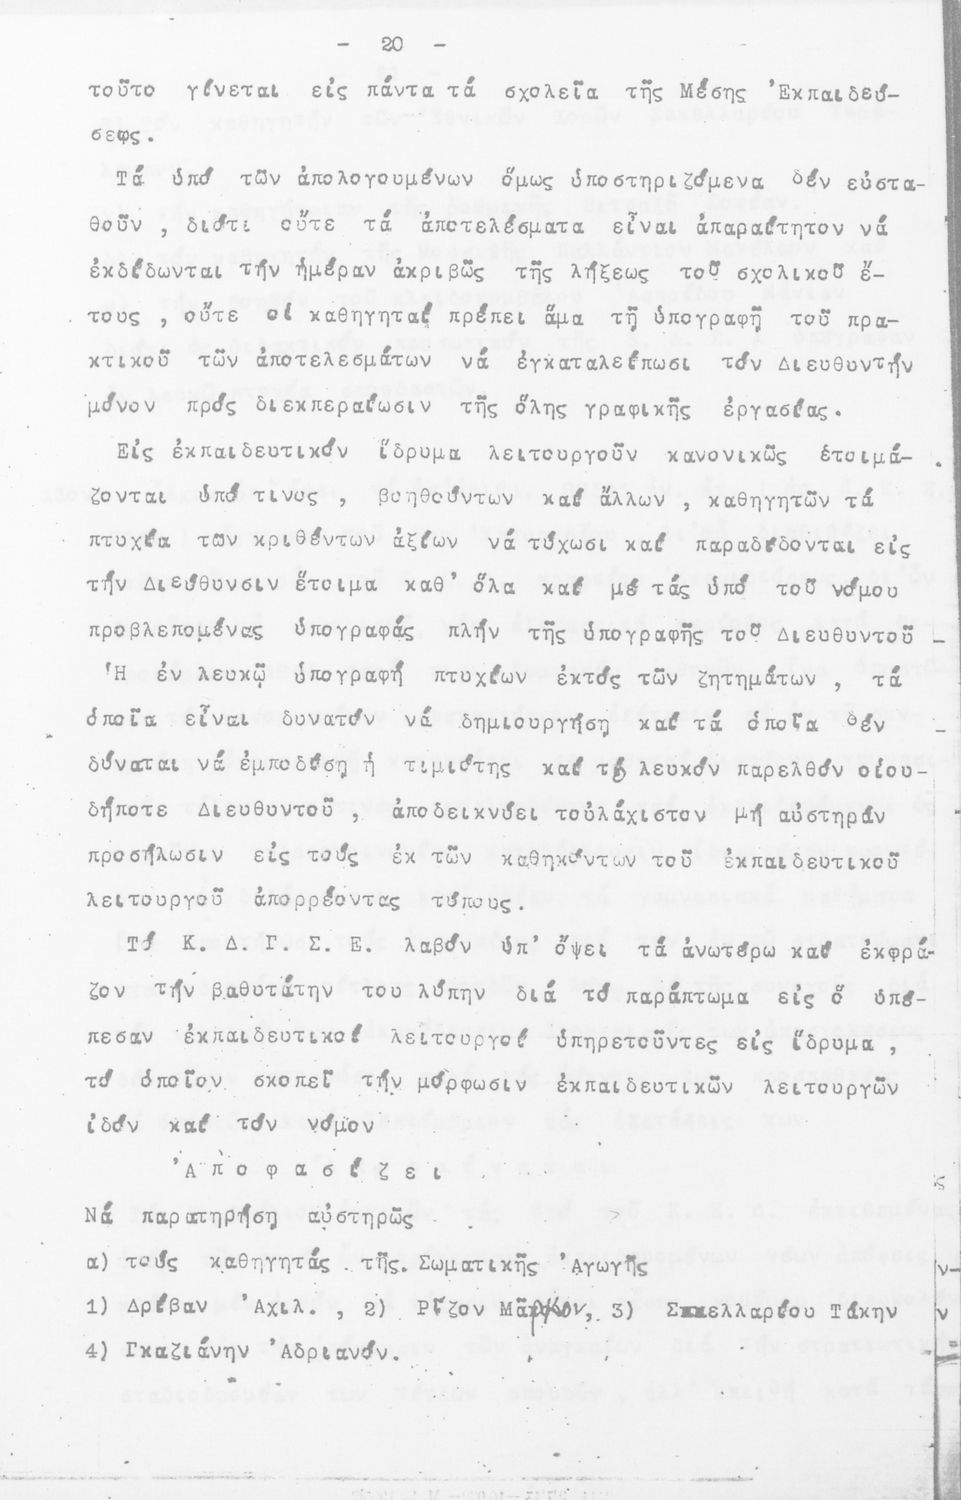 - 20 -
τοῦτο γίνεται εἰς πάντα τά σχολεῖα τῆς Μέσης Ἐκπαιδεύ-
σεως.
Τά ὑπό τῶν ἀπολογουμένων ὅμως ὑποστηριζόμενα δέν εὐστα-
θοῦν , διότι οὔτε τά ἀποτελέσματα εἶναι ἀπαραίτητον νά
ἐκδίδωνται τήν ἡμέραν ἀκριβῶς τῆς λήξεως τοῦ σχολικοῦ ἔ-
τους , οὔτε οἱ καθηγηταί πρέπει ἅμα τῇ ὑπογραφῇ τοῦ πρα-
κτικοῦ τῶν ἀποτελεσμάτων νά ἐγκαταλείπωσι τόν Διευθυντήν
μόνον πρός διεκπεραίωσιν τῆς ὅλης γραφικῆς ἐργασίας.
Εἰς ἐκπαιδευτικόν ἵδρυμα λειτουργοῦν κανονικῶς ἑτοιμά-
ζονται ὑπό τινος , βοηθούντων καί ἄλλων , καθηγητῶν τά
πτυχία τῶν κριθέντων ἀξίων νά τύχωσι καί παραδίδονται εἰς
τήν Διεύθυνσιν ἕτοιμα καθ' ὅλα καί μέ τάς ὑπό τοῦ νόμου
προβλεπομένας ὑπογραφάς πλήν τῆς ὑπογραφῆς τοῦ Διευθυντοῦ
Ἡ ἐν λευκῷ ὑπογραφή πτυχίων ἐκτός τῶν ζητημάτων , τά
ὁποῖα εἶναι δυνατόν νά δημιουργήσῃ καί τά ὁποῖα δέν
δύναται νά ἐμποδίσῃ ἡ τιμιότης καί τό λευκόν παρελθόν οἱου-
δήποτε Διευθυντοῦ , ἀποδεικνύει τοὐλάχιστον μή αὐστηράν
προσήλωσιν εἰς τούς ἐκ τῶν καθηκόντων τοῦ ἐκπαιδευτικοῦ
λειτουργοῦ ἀπορρέοντας τύπους.
Τό Κ. Δ. Γ. Σ. Ε. λαβόν ὑπ' ὄψει τά ἀνωτέρω καί ἐκφρά-
ζον τήν βαθυτάτην του λύπην διά τό παράπτωμα εἰς ὅ ὑπέ-
πεσαν ἐκπαιδευτικοί λειτουργοί ὑπηρετοῦντες εἰς ἵδρυμα ,
τό ὁποῖον σκοπεῖ τήν μόρφωσιν ἐκπαιδευτικῶν λειτουργῶν
ἰδόν καί τόν νόμον
Ἀ π ο φ α σ ί ζ ε ι
Νά παρατηρήσῃ αὐστηρῶς
α) τούς καθηγητάς τῆς Σωματικῆς Ἀγωγῆς
1) Δρίβαν Ἀχιλ. , 2) Ρίζον Μᾶρκον, 3) Σακελλαρίου Τάκην
4) Γκαζιάνην Ἀδριανόν.